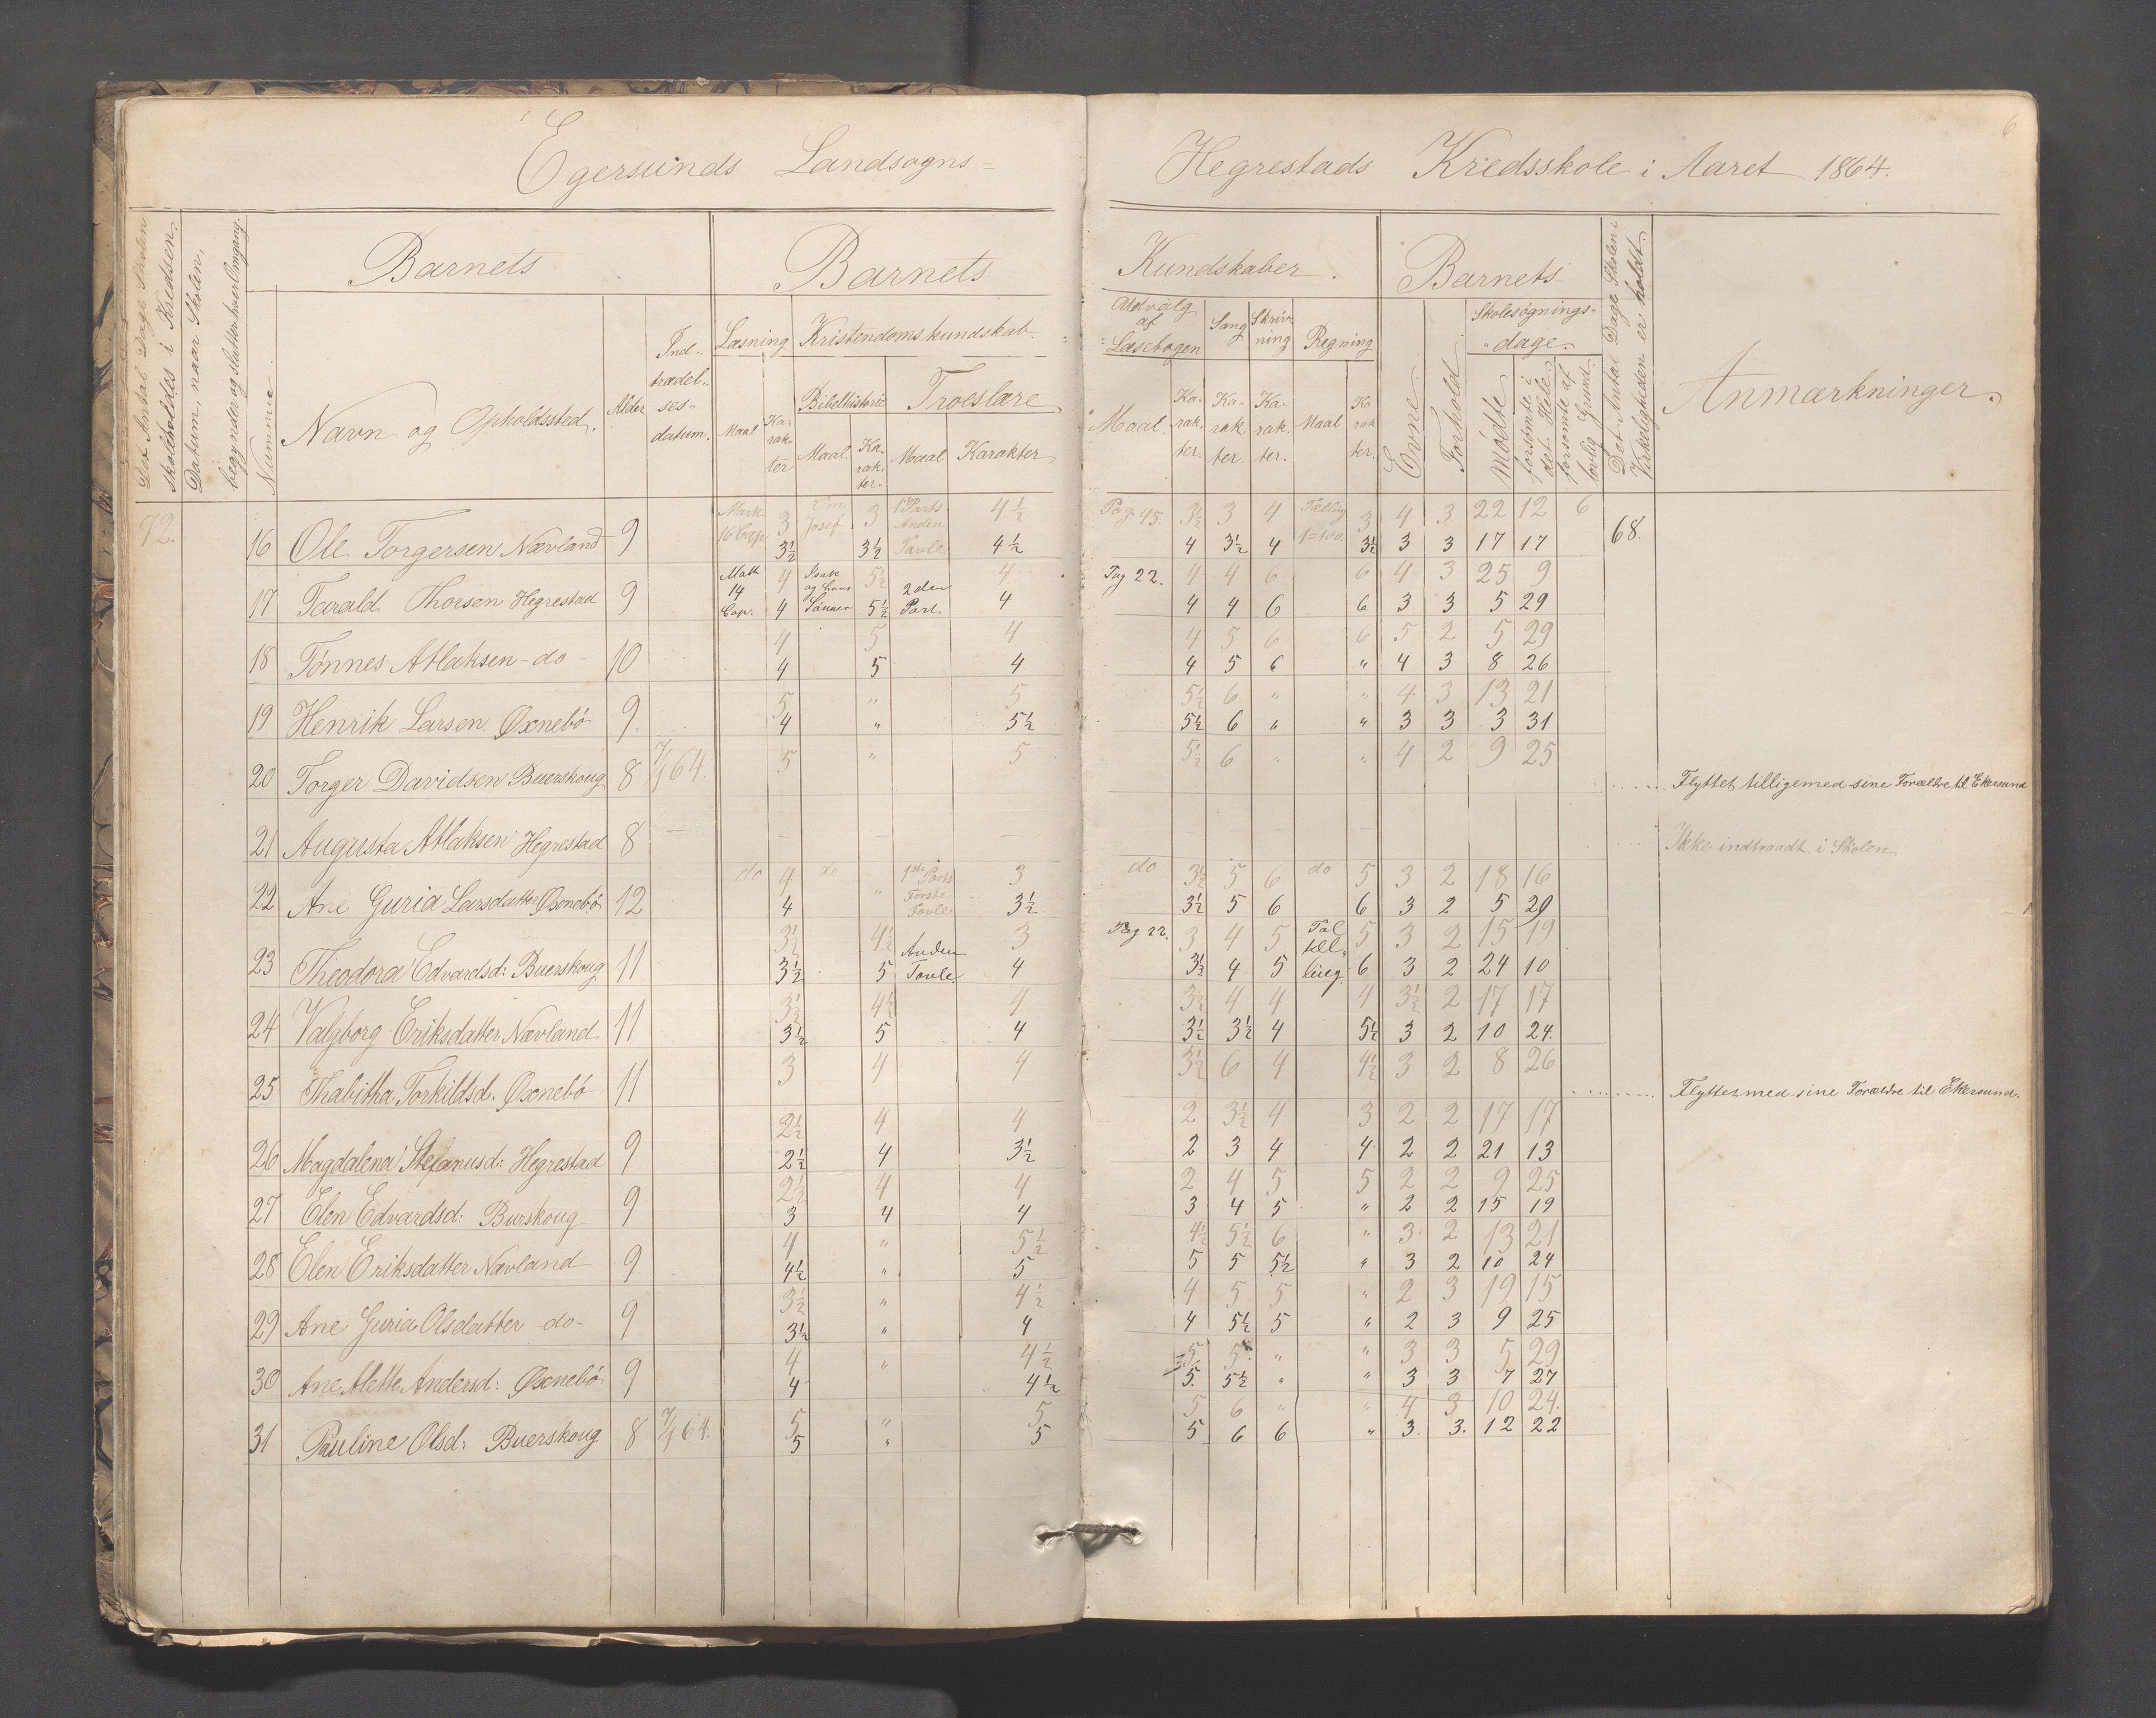 Egersunds Landsogns=
Hegrestads Kredsskole i Aaret 1864.
6
Det Antal Dage Skolen skal holdes i Kredsen.
Datum, naar Skolen begynder og slutter hver Omgang.
Nummer.
Barnets
Navn og Opholdssted.
Alder
Indtrædelsesdatum.
Barnets
Læsning
Kristendomskundskab.
Bibelhistorie
Troeslære
Maal
Karakter
Maal
Karakter
Maal
Karakter
Kundskaber.
Udvalg af Læsebogen
Sang
Skrivning
Regning
Maal.
Karakter.
Karakter.
Karakter.
Maal
Karakter.
Barnets
Evne
Forhold
Skolesøgningsdage.
Mødte
forsømte i det Hele
forsømte af lovlig Grund
Det Antal Dage Skolen i Virkeligheden er holdt
Anmærkninger.
72.
Mark. 16 Cap 3 Josef 3 1ste Parts Anden Tavle 4½ Pag 45. 3½ 3 4 Tælling 1=100 3 4 3 22 12 6
16 Ole Torgersen Nævland 9 3½ 3½ 4½ 4 3½ 4 3½ 3 3 17 17 68.
Math 14 Cap. 4 Isak og hans Sønner 5½ 2den Part 4 Pag 22. 4 4 6 6 4 3 25 9
17 Tarald Thorsen Hegrestad 9 4 5½ 4 4 4 6 6 3 3 5 29
4 5 4 4 5 6 6 5 2 5 29
18 Tønnes Atlaksen - do - 10 4 5 4 4 5 6 " 4 3 8 26
5 " 5 5½ 6 " " 4 3 13 21
19 Henrik Larsen Øxnebö 9. 4 " 5½ 5½ 6 " " 3 3 3 31
5 " 5 5½ 6 " " 4 2 9 25
20 Torger Davidsen Buerskoug 8 7/1 64. Flyttet tilligemed sine Forældre til Ekersund
21 Augusta Atlaksen Hegrestad 8 - - - - - - Ikke indtraadt i Skolen
do 4 do 1ste Parts Første Tavle 3 do 3½ 5 6 do 5 3 2 18 16
22 Ane Guria Larsdatter Øxnebö 12 4 " 3½ 3½ 5 6 6 3 2 5 29
3½ 4½ Anden Tavle 3 Pag 22. 3 4 5 Tal 5 3 2 15 19
23 Theodora Edvardsd: Buerskoug 11 3½ 5 4 3½ 4 5 6 3 2 24 10
3½ 4½ 4 3½ 4 4 4 3½ 2 17 17
24 Valgborg Eriksdatter Nævland 11 3½ 5 4 3½ 3½ 4 5½ 3 2 10 24.
3 4 4 3½ 6 4 4½ 3 2 8 26
25 Thabitha Torkildsd. Øxnebö 11 Flyttet med sine Forældre til Ekersund.
2½ 4 4 2 3½ 4 3 2 2 17 17
26 Magdalena Stefanusd: Hegrestad 9 2½ 4 3½ 2 3 4 4 2 2 21 13
2½ 4 4 2 4 5 5 2 2 9 25
27 Elen Edvardsd: Burskoug 9 3 4 4 3 4 5 " 2 2 15 19
4 " 5½ 4½ 5½ 6 " 3 2 13 21
28 Elen Eriksdatter Nævland 9 4½ " 5 5 5 5½ " 3 2 10 24
3½ " 4½ 4 5 5 " 2 3 19 15
29 Ane Guria Olsdatter -do- 9 3½ " 4 4 5½ 5 " 2 3 9 25
4 " 4½ 5 5 " " 3 3 5 29
30 Ane Mette Andersd: Øxnebö 9 4 4½ 5. 5½ " " 3 3 7 27
5 " 5 5 6 " " 4 3 10 24.
31 Pauline Olsd: Buerskoug 8 7/1 64. 5 " 5 5 6 6 " 3. 3. 12 22